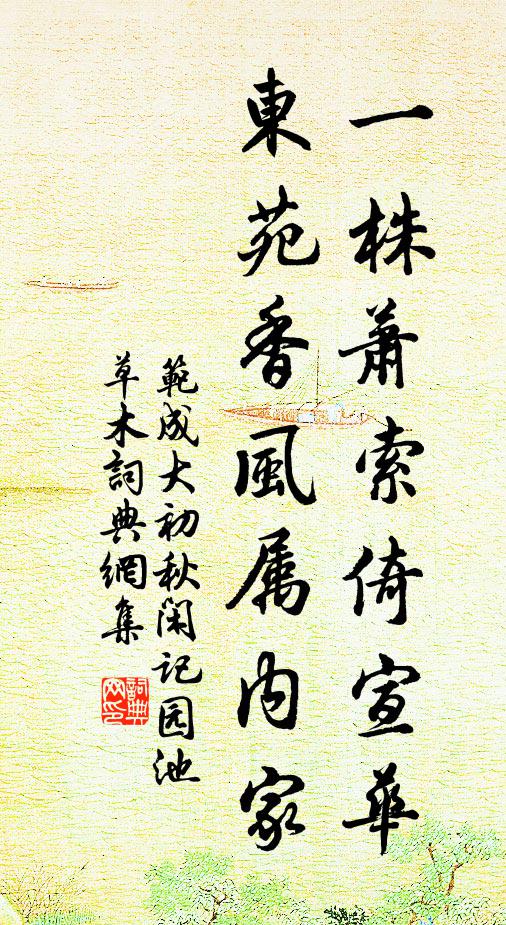 一株蕭索倚宣華
東苑香風属内家
範成大初秋闲记园池
草木詞典網集
詞典网印